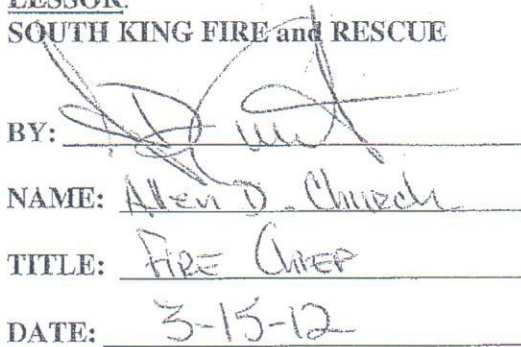 LESSOR:
SOUTH KING FIRE and RESCUE
BY:
NAME: Allen D. Church
TITLE: FIRE CHIEF
DATE: 3-15-12